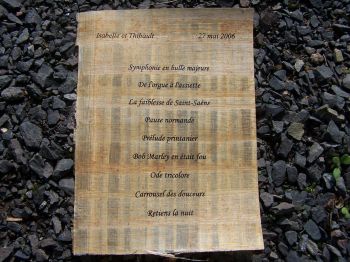 Isabelle et Thibault 27 mai 2006
Symphonie en bulle majeure
De l'orgue à l'assiette
La faiblesse de Saint-Saëns
Pause normande
Prélude printanier
Bob Marley en était fou
Ode tricolore
Carrousel des douceurs
Retiens la nuit